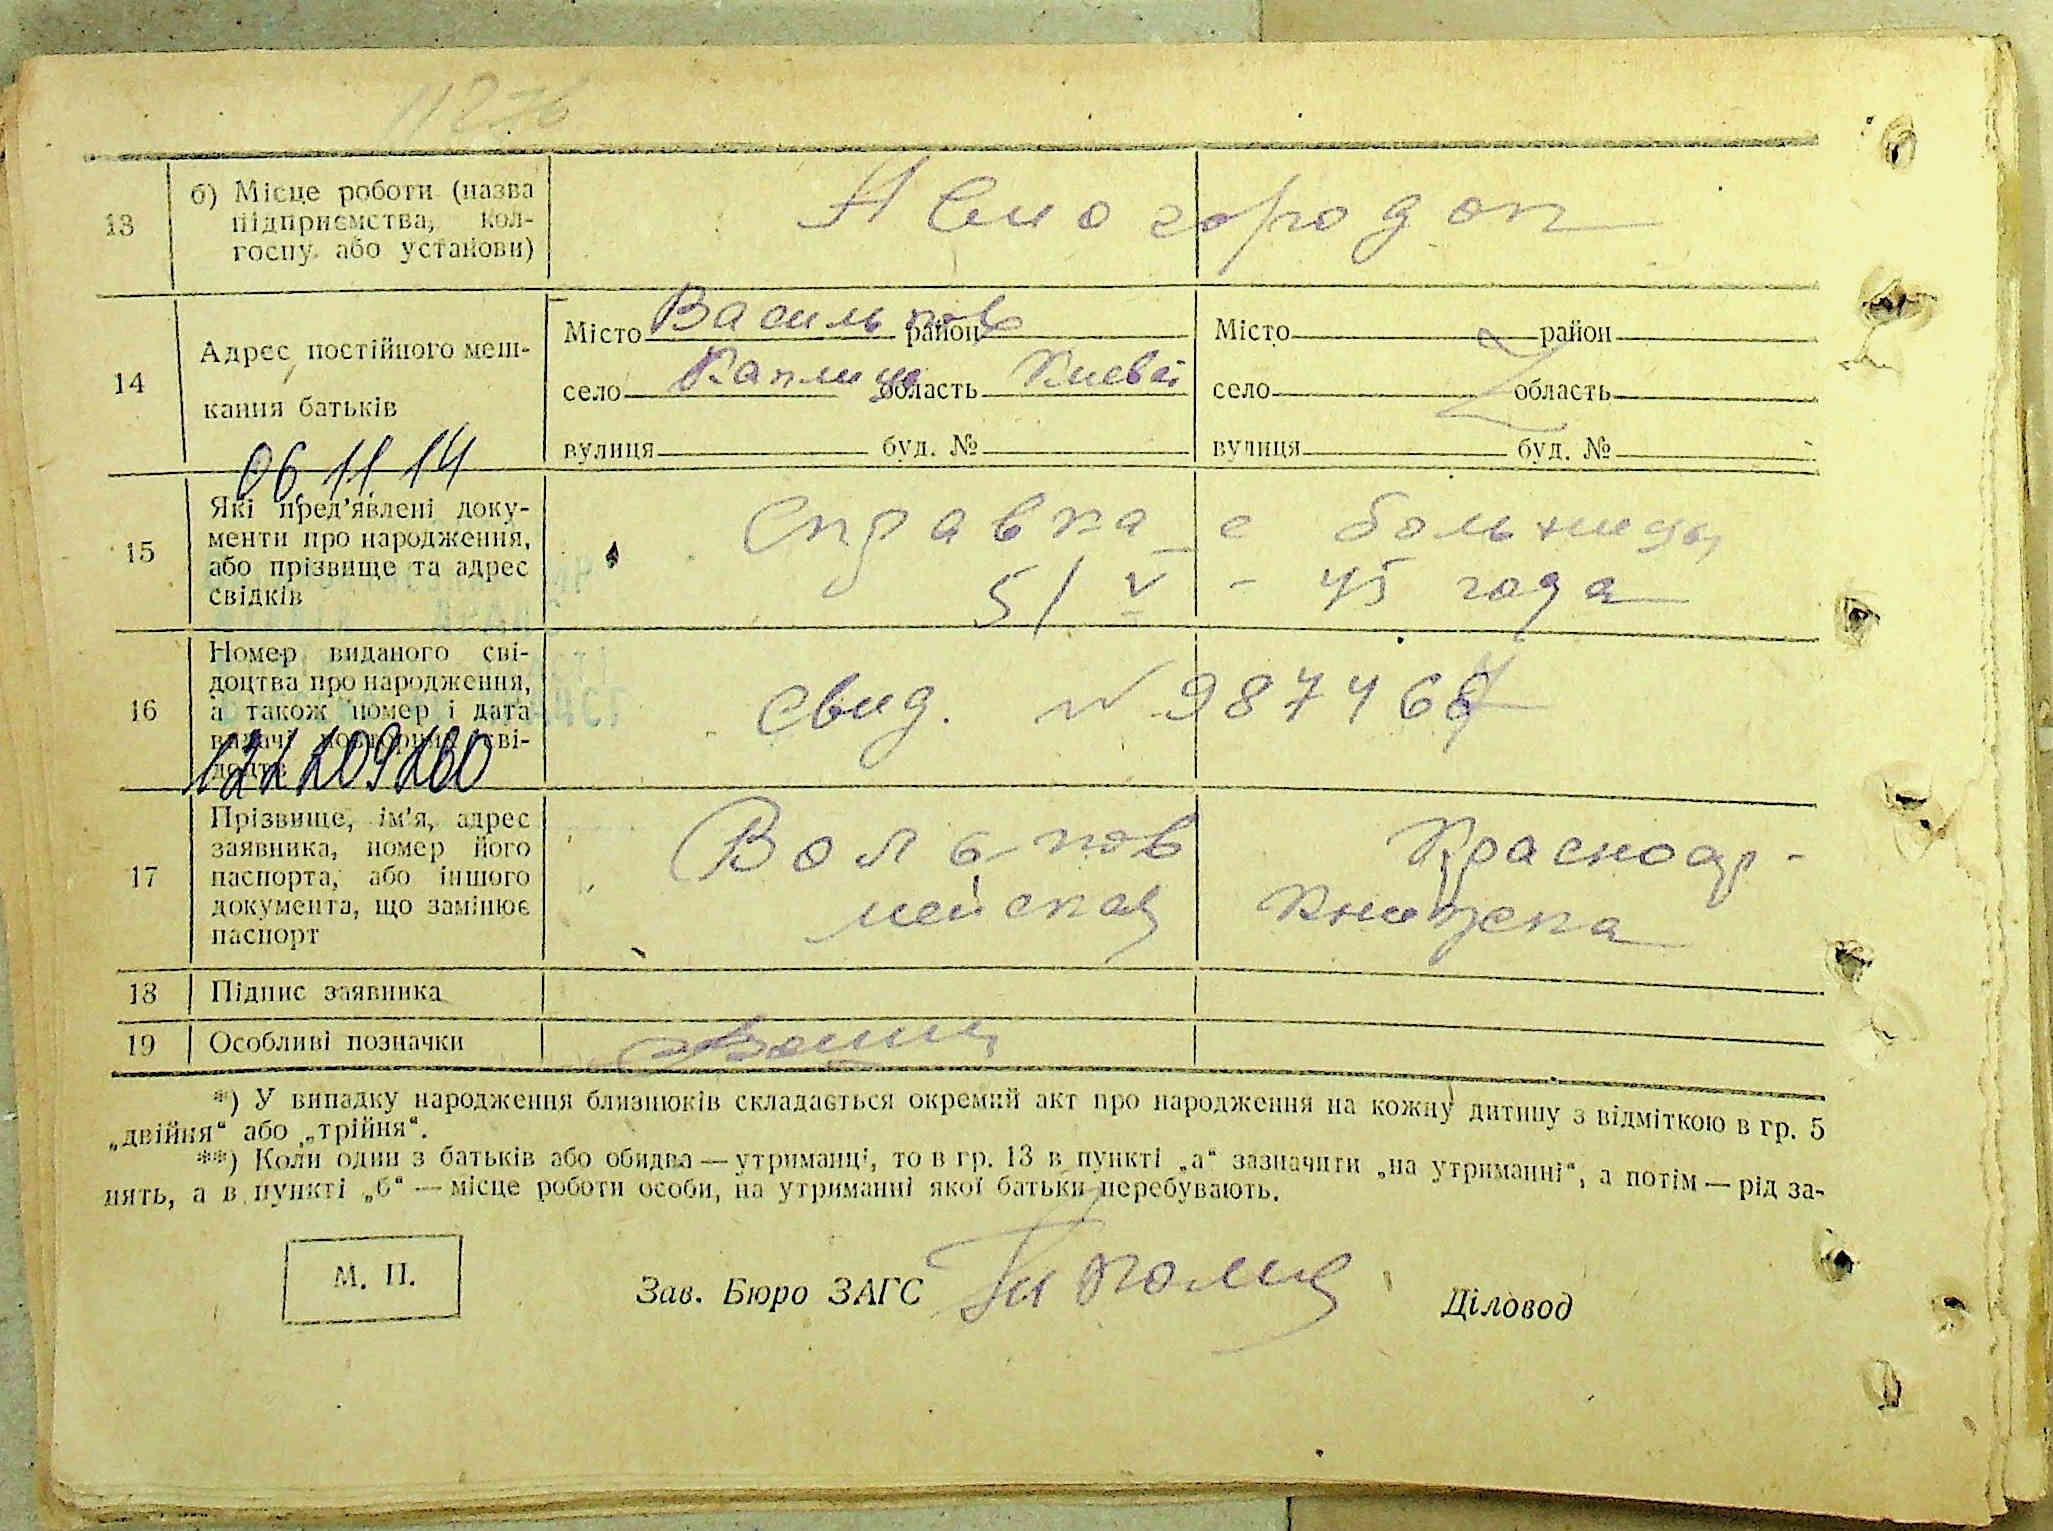 11276
13
б) Місце роботи (назва
підприємства, кол-
госпу або установи)
14
Адрес постійного меш-
кання батьків
Місто Васильков район
село область Киевс
вулиця буд. №
Місто район
село область
вулиця буд. №
06.11.14
15
Які пред'явлені доку-
менти про народження,
або прізвище та адрес
свідків
Справка с больницы
5/V - 45 года
16
Номер виданого сві-
доцтва про народження,
а також номер і дата
видачі повторних сві-
доцтв
Свид. N 987468
17
Прізвище, ім'я, адрес
заявника, номер його
паспорта, або іншого
документа, що замінює
паспорт
Красноар-
мейская книжека
18
Підпис заявника
19
Особливі позначки
*) У випадку народження близнюків складається окремий акт про народження на кожну дитину з відміткою в гр. 5
„двійня“ або „трійня“.
**) Коли один з батьків або обидва — утриманці, то в гр. 13 в пункті „а“ зазначити „на утриманні“, а потім — рід за-
нять, а в пункті „б“ — місце роботи особи, на утриманні якої батьки перебувають.
М. П.
Зав. Бюро ЗАГС
Діловод